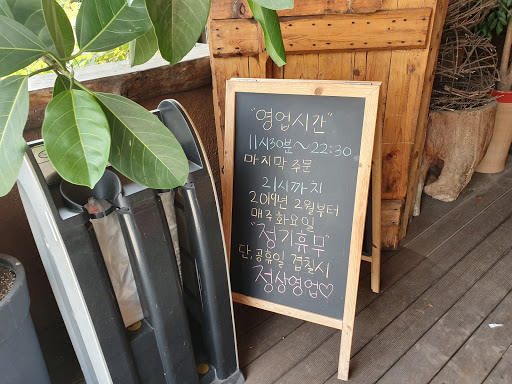 "영업시간"
11시30분~22:30
마지막 주문
21시까지
2019년 2월부터
매주 화요일
"정기휴무"
단, 공휴일 겹칠시
정상영업♡